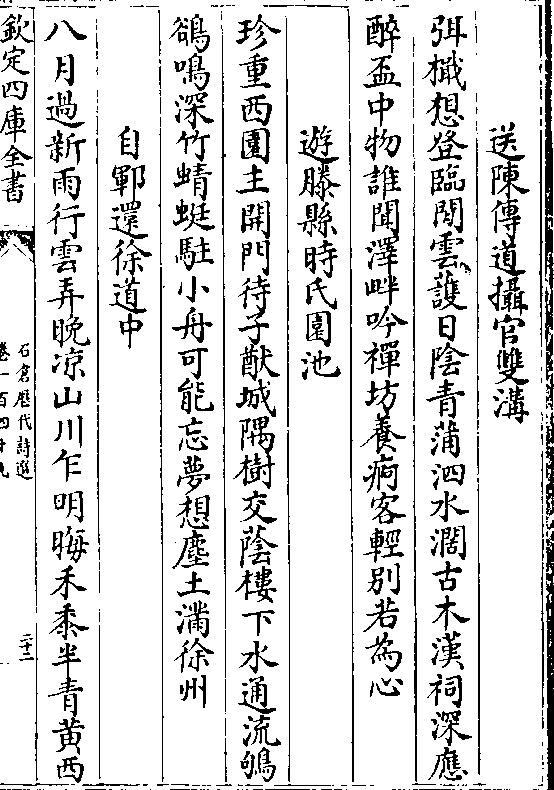 送陳傳道攝官雙溝
弭檝想登臨閱雲護日陰青蒲泗水濶古木漢祠深應
醉盃中物誰聞澤畔吟禪坊養痾客輕别若為心
遊滕縣時氏園池
珍重西園主開門待子猷城隅樹交蔭樓下水通流鳲
鵅鳴深竹蜻蜓駐小舟可能忘夢想塵土滿徐州
自鄆還徐道中
八月過新雨行雲弄晩凉山川乍明晦禾黍半青黄西
欽定四庫全書
石倉歴代詩選
卷一百四十九
二十二